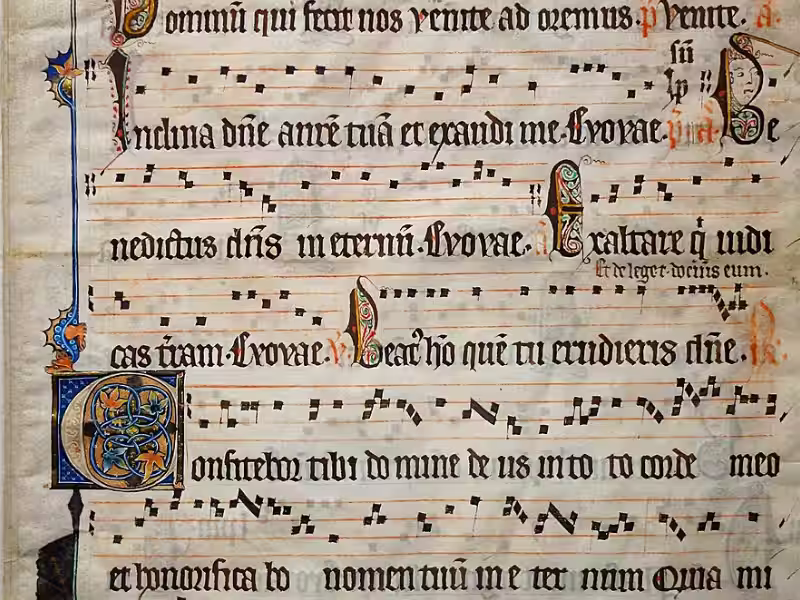 Dominū qui fecit nos venite ad oremus. p̄ Venite. a.
sū
ip̄
Inclina dn̄e aurē tuā et exaudi me. Evovae. Be
nedictus dn̄s in eternū. Evovae. a Exaltare q i iudi
Et de lege t. docūis eum.
cas t̄ram. Evovae. V Beat' hō quē tu erudieris dn̄e. R
Confitebor tibi do mine de us in to to corde meo
et honorifica bo nomen tuū in e ter num Quia mi